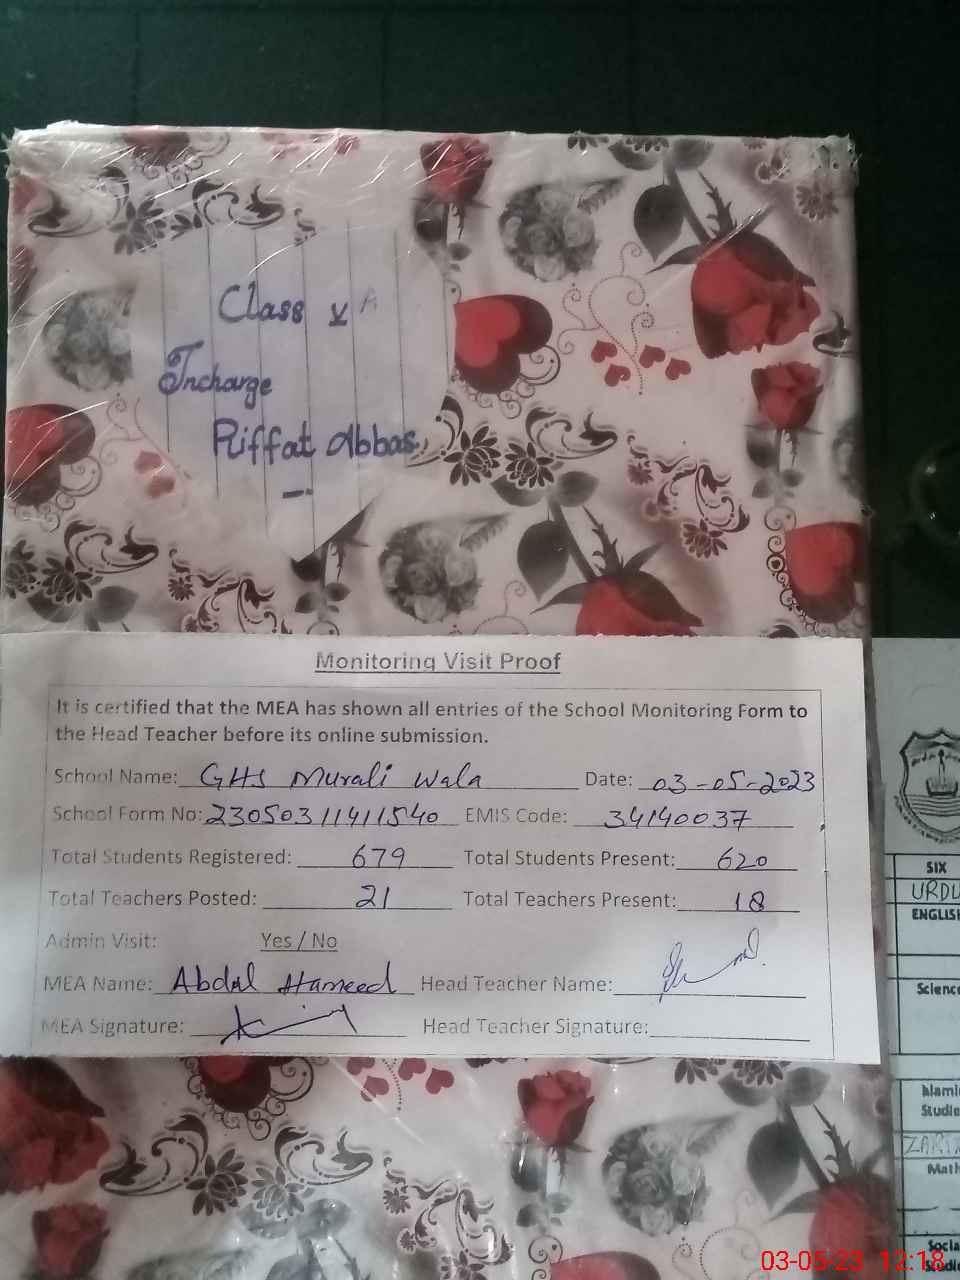 Class V A
Incharge
Riffat Abbas
Monitoring Visit Proof
It is certified that the MEA has shown all entries of the School Monitoring Form to
the Head Teacher before its online submission.
School Name: GHS Murali Wala Date: 03-05-2023
School Form No: 23050311411540 EMIS Code: 34140037
Total Students Registered: 679 Total Students Present: 620
Total Teachers Posted: 21 Total Teachers Present: 18
Admin Visit: Yes / No
MEA Name: Abdul Hameed Head Teacher Name:
MEA Signature: Head Teacher Signature:
SIX
URDU
ENGLISH
Science
Islami
Studie
Math
Socia
Studie
03-05-23 12:18